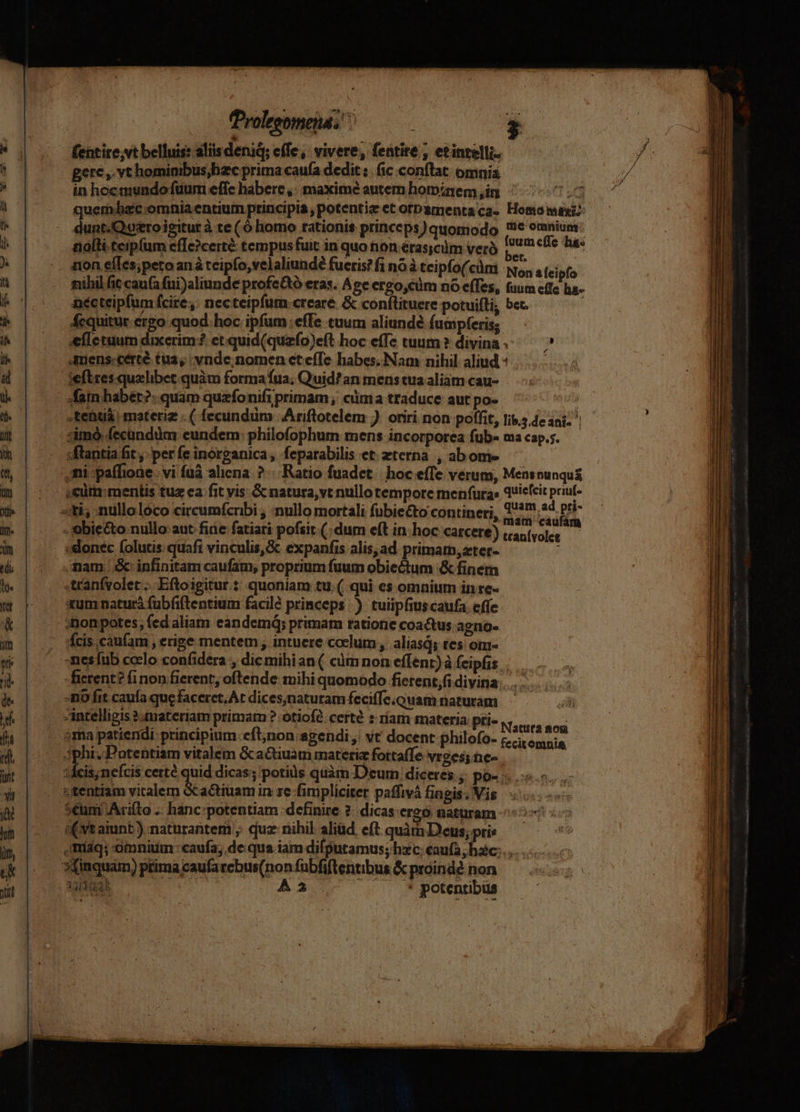 Prolegomena. 3
sentire, vt belluis: aliis deniq; esse, vivere, sentire, et intelli-
gere, vt hominibus, hæc prima causa dedit: sic constat omnia
in hoc mundo suum esse habere, maximè autem hominem, in
quem hæc omnia entium principia, potentiæ et ornamenta ca-
dunt. Quæro igitur à te (ô homo rationis princeps) quomodo
nosti teipsum esse? certè tempus fuit in quo non eras; cùm verò
non esses, peto an à teipso, vel aliundè fueris? si nō à teipso (cùm
nihil sit causa sui) aliunde profectò eras. Age ergo, cùm nō esses,
nec teipsum scire, nec teipsum creare & constituere potuisti,
sequitur ergo quod hoc ipsum esse tuum aliundè sumpseris;
esse tuum dixerim? et quid (quæso) est hoc esse tuum? divina
mens certè tua, vnde nomen et esse habes. Nam nihil aliud
est res quælibet quàm forma sua. Quid? an mens tua aliam cau-
sam habet? quam quæso nisi primam, cùm a traduce aut po-
tentiâ materiæ (secundùm Aristotelem) oriri non possit,
imò secundùm eundem philosophum mens incorporea sub-
stantia sit, per se inorganica, separabilis et æterna, ab om-
ni passione vi suâ aliena? Ratio suadet hoc esse verum,
cùm mentis tuæ ea sit vis & natura, vt nullo tempore mensura-
ti, nullo loco circumscribi, nullo mortali subiecto contineri,
obiecto nullo aut fine satiari possit (dum est in hoc carcere)
donec solutis quasi vinculis, & expansis alis, ad primam, æter-
nam & infinitam causam, proprium suum obiectum & finem
transvolet. Esto igitur: quoniam tu (qui es omnium in re-
rum naturâ subsistentium facilè princeps) tui ipsius causa esse
non potes, sed aliam eandemq; primam ratione coactus agno-
scis causam, erige mentem, intuere cœlum, aliasq; res om-
nes sub cœlo considera, dic mihi an (cùm non essent) à seipsis
fierent? si non fierent, ostende mihi quomodo fierent, si divina
nō sit causa quę faceret. At dices, naturam fecisse. Quam naturam
intelligis? materiam primam? otiosè certè: nam materia pri-
ma patiendi principium est, non agendi, vt docent philoso-
phi. Potentiam vitalem & actiuam materiæ fortasse vrges; ne-
scis, nescis certè quid dicas; potiùs quàm Deum diceres, po-
tentiam vitalem & actiuam in re simpliciter passivâ fingis. Vis
cum Aristo. hanc potentiam definire? dicas ergo naturam
(vt aiunt) naturantem, quæ nihil aliud est quàm Deus, pri-
maq; omnium causa, de qua iam disputamus; hæc causa, hæc
(inquam) prima causa rebus (non subsistentibus & proindè non
A 2 potentibus
Homo maxi-
mè omnium
suum esse ha-
bet.
Non à seipso
suum esse ha-
bet.
lib.3. de ani-
ma cap.5.
Mens nunquā
quiescit prius-
quam ad pri-
mam causam
transvolet
Natura non
fecit omnia